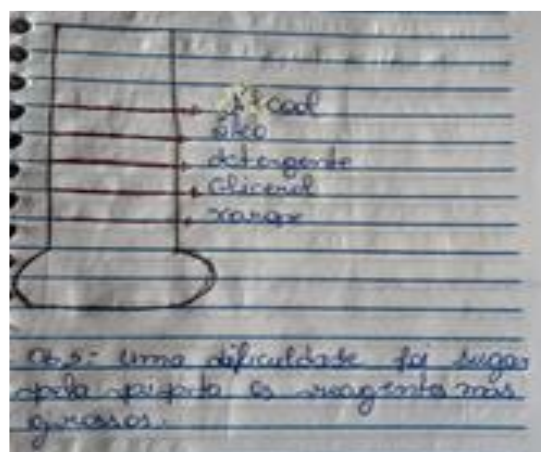 Álcool
óleo
detergente
Glicerol
xarope
Obs: Uma dificuldade foi sugar
pela pipeta os reagentes mais
grossos.